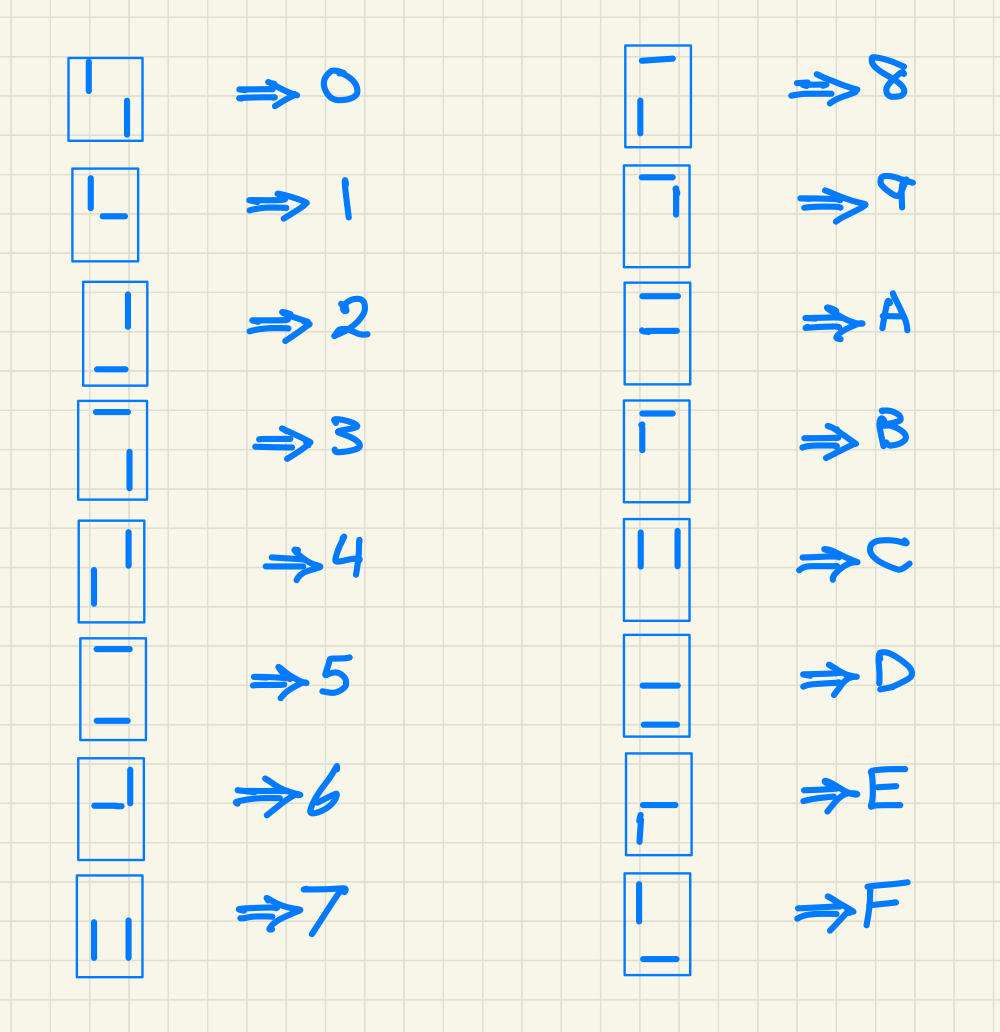 ⇒ 0
⇒ 1
⇒ 2
⇒ 3
⇒ 4
⇒ 5
⇒ 6
⇒ 7
⇒ 8
⇒ 9
⇒ A
⇒ B
⇒ C
⇒ D
⇒ E
⇒ F